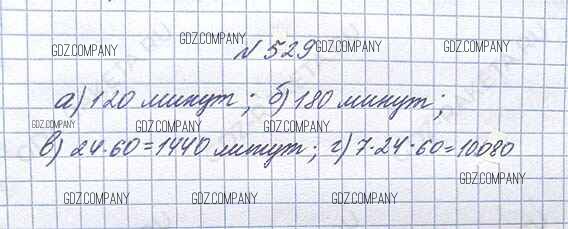 GDZ.COMPANY GDZ.COMPANY GDZ.COMPANY
№ 529
GDZ.COMPANY GDZ.COMPANY GDZ.COMPANY
а) 120 минут; б) 180 минут;
GDZ.COMPANY GDZ.COMPANY GDZ.COMPANY
в) 24·60=1440 минут; г) 7·24·60=10080
GDZ.COMPANY GDZ.COMPANY GDZ.COMPANY